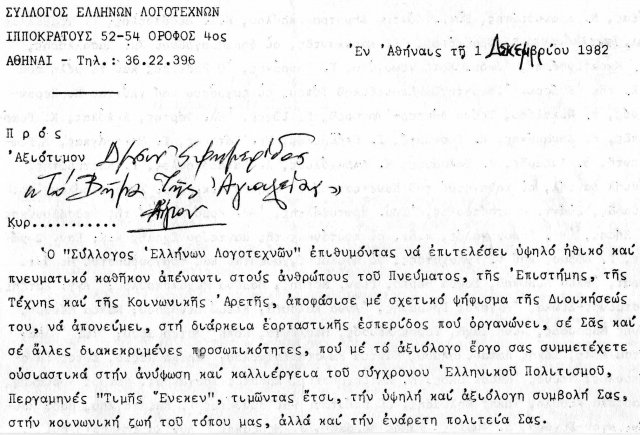 ΣΥΛΛΟΓΟΣ ΕΛΛΗΝΩΝ ΛΟΓΟΤΕΧΝΩΝ
ΙΠΠΟΚΡΑΤΟΥΣ 52-54 ΟΡΟΦΟΣ 4ος
ΑΘΗΝΑΙ - Τηλ.: 36.22.396
Ἐν Ἀθήναις τῇ 1 Δεκεμβρίου 1982
Π ρ ό ς
Ἀξιότιμον Δ/σιν Ἐφημερίδος
"Τό Βῆμα τῆς Αἰγιαλείας"
Κυρ........... Αἴγιον
Ὁ "Σύλλογος Ἑλλήνων Λογοτεχνῶν" ἐπιθυμόντας νά ἐπιτελέσει ὑψηλό ἠθικό καί
πνευματικό καθῆκον ἀπέναντι στούς ἀνθρώπους τοῦ Πνεύματος, τῆς Ἐπιστήμης, τῆς
Τέχνης καί τῆς Κοινωνικῆς Ἀρετῆς, ἀποφάσισε μέ σχετικό ψήφισμα τῆς Διοικήσεώς
του, νά ἀπονείμει, στή διάρκεια ἑορταστικῆς ἑσπερίδος πού ὀργανώνει, σέ Σᾶς καί
σέ ἄλλες διακεκριμένες προσωπικότητες, πού μέ τό ἀξιόλογο ἔργο σας συμμετέχετε
οὐσιαστικά στήν ἀνύψωση καί καλλιέργεια τοῦ σύγχρονου Ἑλληνικοῦ Πολιτισμοῦ,
Περγαμηνές "Τιμῆς Ἕνεκεν", τιμῶντας ἔτσι, τήν ὑψηλή καί ἀξιόλογη συμβολή Σας,
στήν κοινωνική ζωή τοῦ τόπου μας, ἀλλά καί τήν ἐνάρετη πολιτεία Σας.